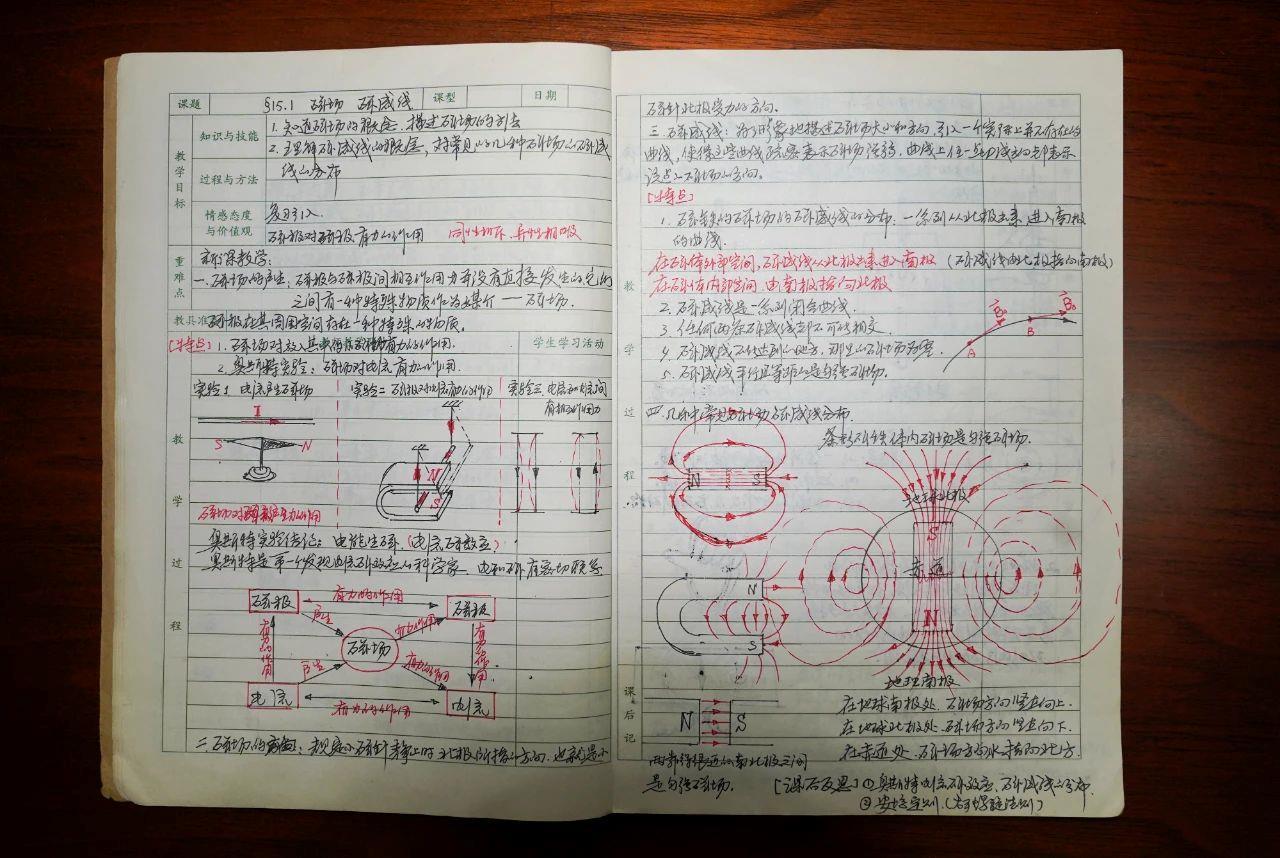 课题 §15.1 磁场 磁感线 课型 日期
教学目标
知识与技能
1. 知道磁场的概念，描述磁场的方法
2. 理解磁感线的概念，对常见的几种磁场的磁感
线的分布
过程与方法
情感态度与价值观
复习引入
磁极对磁极有力的作用 同性相斥，异性相吸
重难点
新课教学：
一、磁场的产生：磁极与磁极间相互作用力并没有直接发生的，它们
之间有一种特殊物质作为媒介——磁场.
教具准
磁极在其周围空间存在一种特殊的物质。
[特点] 1. 磁场对放入其中的磁极有力的作用.
学生学习活动
2. 奥斯特实验：磁场对电流有力的作用.
实验1 电流产生磁场 实验二 磁极对电流有力的作用 实验三 电流和电流间
有相互作用力
I
S N
N
S
磁场对磁极产生力的作用
教学过程
奥斯特实验结论：电能生磁.(电流磁效应)
奥斯特是第一个发现电流磁效应的科学家. 电和磁有密切联系
磁极 有力的作用 磁极
产生 有力的作用
有力的作用 磁场 有力的作用
产生 有力的作用
电流 有力的作用 电流
二、磁场的方向：规定小磁针静止时北极所指的方向. 也就是小
磁针北极受力的方向.
三、磁感线：为了形象地描述磁场大小和方向，引入一个实际上并不存在的
曲线，使得这些曲线疏密表示磁场强弱，曲线上任一点切线方向都表示
该点的磁场的方向。
[特点]
1. 磁铁的磁场的磁感线的分布. 一系列从北极出来，进入南极
的曲线.
在磁体外部空间，磁感线从北极出来进入南极 (磁感线由北极指向南极)
在磁体内部空间，由南极指向北极
2. 磁感线是一系列闭合曲线.
3. 任何两条磁感线都不可能相交.
4. 磁感线不能达到的地方，那里的磁场为零.
5. 磁感线平行且等距的是匀强磁场.
A B
教学过程
四、几种常见磁场磁感线分布
条形磁铁体内磁场是匀强磁场.
N S
地球北极
S
赤道
N
地理南极
N
S
课后记
N S
在地球南极处，磁场方向竖直向上.
在地球北极处，磁场方向竖直向下.
在赤道处，磁场方向水平指向北方.
两靠得很近的南北极之间
是匀强磁场.
[课后反思] ①奥斯特电流磁效应，磁感线的分布
②安培定则.(右手螺旋法则)